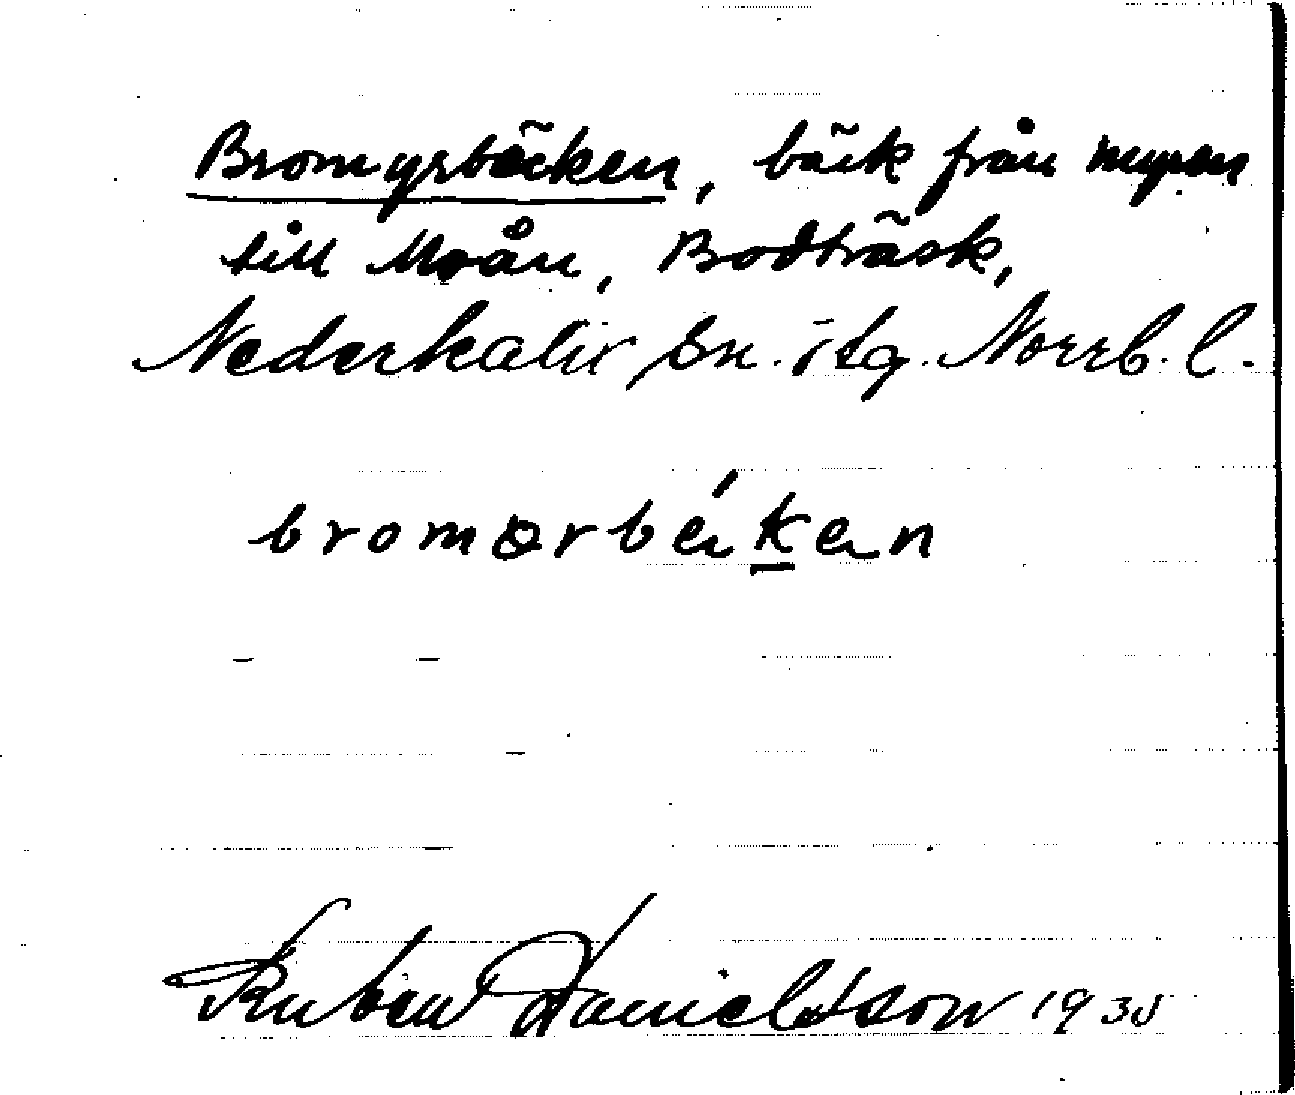 Bromyrbäcken, bäck från myren
till Moån, Bodträsk,
Nederkalix sn. o tg. Norrb. l.
bromørbéken
Ruben Danielsson 1935